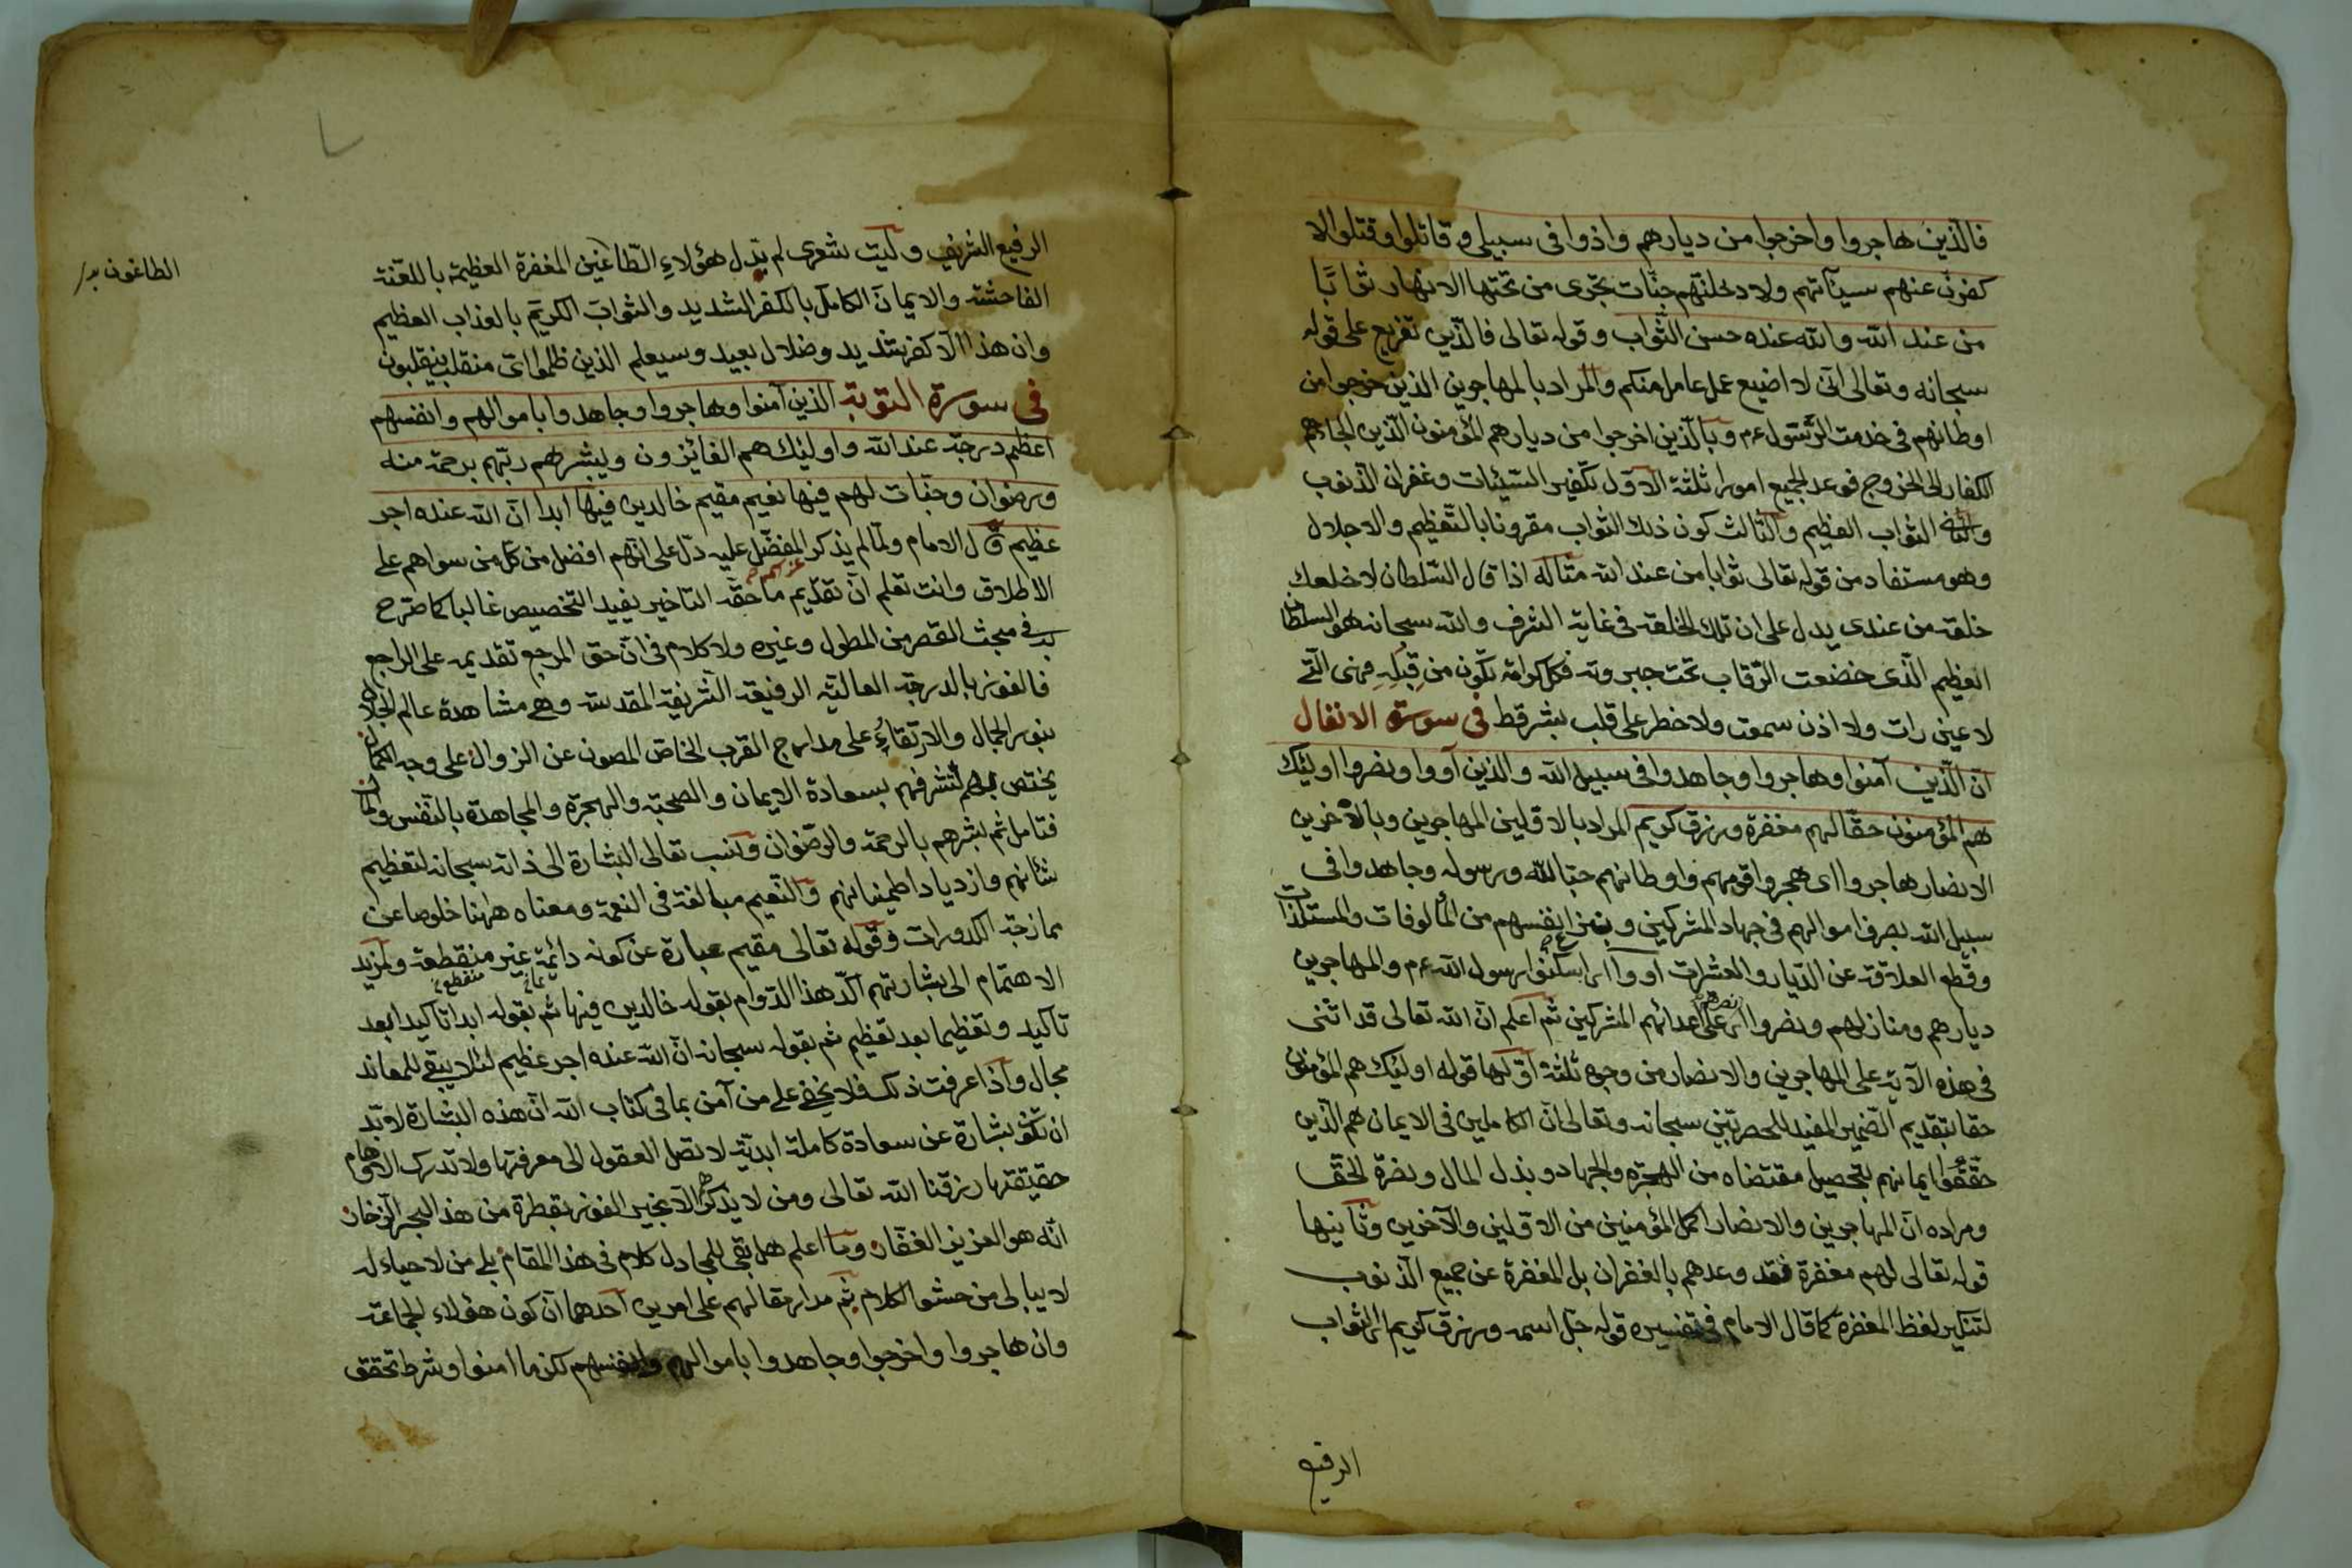 فالذين هاجروا واخرجوا من ديارهم واذوا فى سبيلى وقاتلوا وقتلوا لا
كفرن عنهم سيآتهم ولادخلنهم جنات تجرى من تحتها الانهار ثوابًا
من عند الله والله عنده حسن الثواب وقوله تعالى فالذين تفريع على قوله
سبحانه وتعالى انى لا اضيع عمل عامل منكم والمراد بالمهاجرين الذين خرجوا من
اوطانهم فى خدمت الرسول عم وبالذين اخرجوا من ديارهم المؤمنون الذين الجاءهم
الكفار الى الخروج فوعد الجميع امورا ثلثة الاول تكفير السيئات وغفران الذنوب
والثانى الثواب العظيم والثالث كون ذلك الثواب مقرونا بالتعظيم والاجلال
وهو مستفاد من قوله تعالى ثوابا من عند الله مثاله اذا قال السلطان لاخلعك
خلعة من عندى يدل على ان تلك الخلعة فى غاية الشرف والله سبحانه هو السلطان
العظيم الذى خضعت الرقاب تحت جبروته فكل كرامة تكون من قبله فهى التى
لا عين رات ولا اذن سمعت ولا خطر على قلب بشر قط فى سورة الانفال
ان الذين آمنوا وهاجروا وجاهدوا فى سبيل الله والذين آووا ونصروا اولئك
هم المؤمنون حقا لهم مغفرة ورزق كريم المراد بالاولين المهاجرين وبالآخرين
الانصار هاجروا اى هجروا قومهم واوطانهم حبا لله ورسوله وجاهدوا فى
سبيل الله بصرف اموالهم فى جهاد المشركين وبمنع انفسهم من المألوفات والمستلذات
وقطع العلاقة عن الديار والعشرات آووا اى اسكنوا رسول الله عم والمهاجرين
ديارهم ومنازلهم ونصروا اى نصرهم على اعدائهم المشركين ثم اعلم ان الله تعالى قد اثنى
فى هذه الآية على المهاجرين والانصار من وجوه ثلثة اولها قوله اولئك هم المؤمنون
حقا بتقديم الضمير المفيد للحصر تبين سبحانه وتعالى ان الكاملين فى الايمان هم الذين
حققوا ايمانهم بتحصيل مقتضاه من الهجرة والجهاد وبذل المال ونصرة الحق
ومراده ان المهاجرين والانصار اكمل المؤمنين من الاولين والآخرين وثانيها
قوله تعالى لهم مغفرة فقد وعدهم بالغفران بل المغفرة عن جميع الذنوب
لتنكير لفظ المغفرة كما قال الامام فى تفسيره قوله جل اسمه ورزق كريم اى الثواب
الرفيع
الرفيع الشريف وليت شعرى لم بدل هؤلاء الطاغين المغفرة العظيمة باللعنة
الطاغون بدل
الفاحشة والايمان الكامل بالكفر الشديد والثواب الكريم بالعذاب العظيم
وان هذا الا كفر شديد وضلال بعيد وسيعلم الذين ظلموا اى منقلب ينقلبون
فى سورة التوبة الذين آمنوا وهاجروا وجاهدوا باموالهم وانفسهم
اعظم درجة عند الله واولئك هم الفائزون ويبشرهم ربهم برحمة منه
ورضوان وجنات لهم فيها نعيم مقيم خالدين فيها ابدا ان الله عنده اجر
عظيم قال الامام ولما لم يذكر المفضل عليه دل على انهم افضل من كل من سواهم على
الاطلاق وانت تعلم ان تقديم ما حقه التاخير يفيد التخصيص غالبا كما صرح
به فى مبحث القصر من المطول وغيره ولا كلام فى ان حق المرجع تقديمه على الراجع
فالفوز بالدرجة العالية الرفيعة الشريفة المقدسة وهى مشاهدة عالم الجلال
بنور الجمال والارتقاء على مدارج القرب الخاص المصون عن الزوال على وجه الكمال
يختص بهم لتشرفهم بسعادة الايمان والصحبة والهجرة والمجاهدة بالنفس والمال
فتامل ثم بشرهم بالرحمة والرضوان ونسب تعالى البشارة الى ذاته سبحانه لتعظيم
شأنهم وازدياد اطمينانهم والنعيم مبالغة فى النعمة ومعناه ههنا خلوصا عن
ممازجة الكدورات وقوله تعالى مقيم عبارة عن كونه دائمة غير منقطعة ولمزيد
الاهتمام الى بشارتهم اكد هذا الدوام بقوله خالدين فيها ثم بقوله ابدا تاكيدا بعد
تاكيد وتعظيما بعد تعظيم ثم بقوله سبحانه ان الله عنده اجر عظيم لئلا يبقى للمعاند
مجال واذا عرفت ذلك فلا يخفى على من آمن بما فى كتاب الله ان هذه البشارة لا بد
ان تكون بشارة عن سعادة كاملة ابدية لا تصل العقول الى معرفتها ولا تدرك الاوهام
حقيقتها رزقنا الله تعالى ومن لا يذكرهم الا بخير الفوز بقطرة من هذا البحر الزخار
انه هو العزيز الغفار وما اعلم هل بقى للمجادل كلام فى هذا المقام بلى من لا حياء له
لا يبالى من حشو الكلام ثم مدار مقالهم على امرين احدهما ان كون هؤلاء الجماعة
وان هاجروا واخرجوا وجاهدوا باموالهم وانفسهم لكن ما امنوا وشرط تحقق